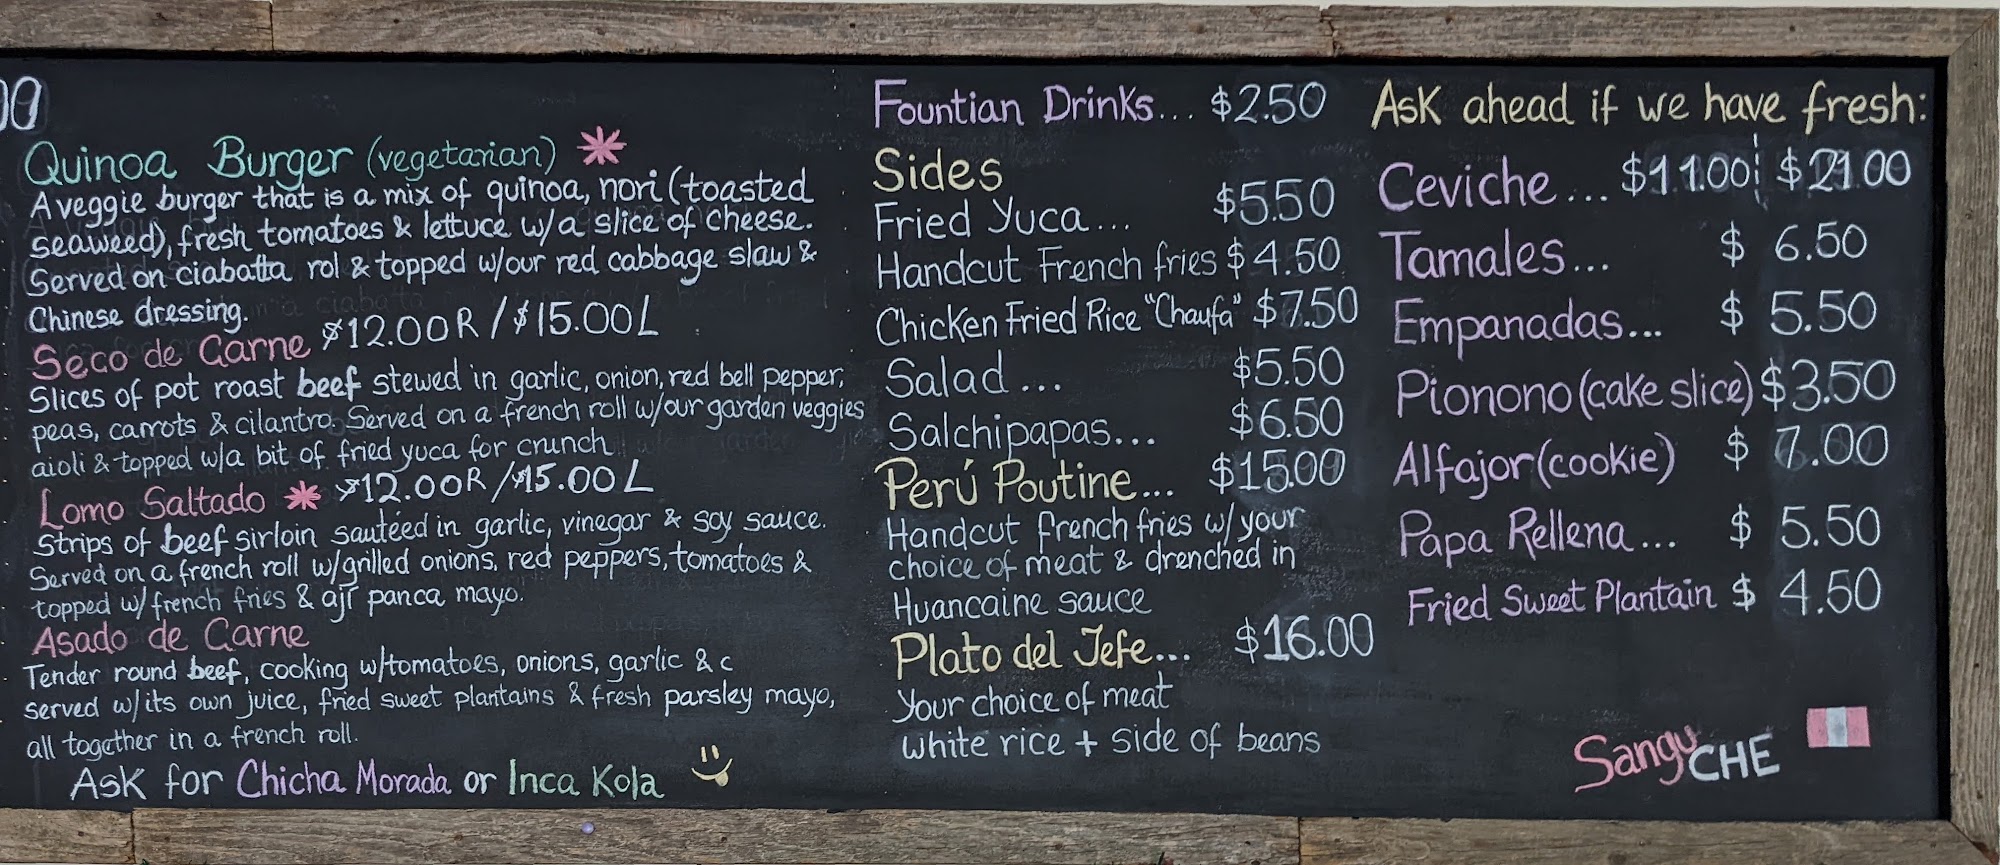 Quinoa Burger (vegetarian)
A veggie burger that is a mix of quinoa, nori (toasted
seaweed), fresh tomatoes & lettuce w/a slice of cheese.
Served on ciabatta rol & topped w/our red cabbage slaw &
Chinese dressing.
Seco de Carne $12.00R/$15.00L
Slices of pot roast beef stewed in garlic, onion, red bell pepper,
peas, carrots & cilantro. Served on a french roll w/our garden veggies
aioli & topped w/a bit of fried yuca for crunch
Lomo Saltado $12.00R/$15.00L
Strips of beef sirloin sautéed in garlic, vinegar & soy sauce.
Served on a french roll w/grilled onions, red peppers, tomatoes &
topped w/french fries & ají panca mayo.
Asado de Carne
Tender round beef, cooking w/tomatoes, onions, garlic & c
served w/its own juice, fried sweet plantains & fresh parsley mayo,
all together in a french roll.
Ask for Chicha Morada or Inca Kola
Fountian Drinks... $2.50
Sides
Fried Yuca... $5.50
Handcut French fries $4.50
Chicken Fried Rice "Chaufa" $7.50
Salad... $5.50
Salchipapas... $6.50
Perú Poutine... $15.00
Handcut french fries w/your
choice of meat & drenched in
Huancaine sauce
Plato del Jefe... $16.00
Your choice of meat
white rice + side of beans
Ask ahead if we have fresh:
Ceviche... $11.00 $21.00
Tamales... $6.50
Empanadas... $5.50
Pionono (cake slice) $3.50
Alfajor (cookie) $7.00
Papa Rellena... $5.50
Fried Sweet Plantain $4.50
SanguCHE